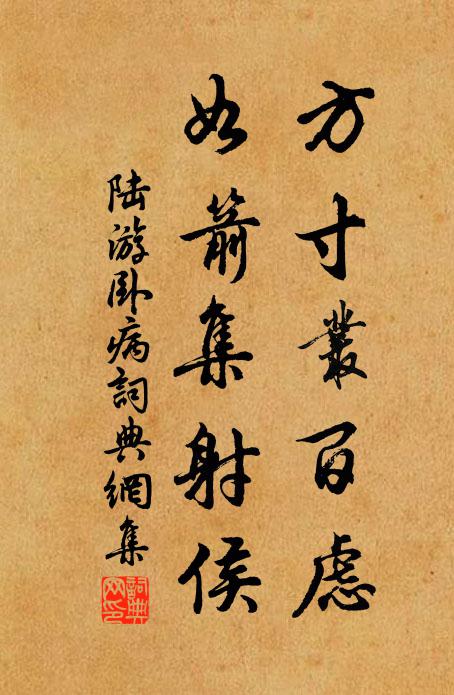 方寸叢百慮
如箭集射侯
陆游卧病詞典網集
詞典網印